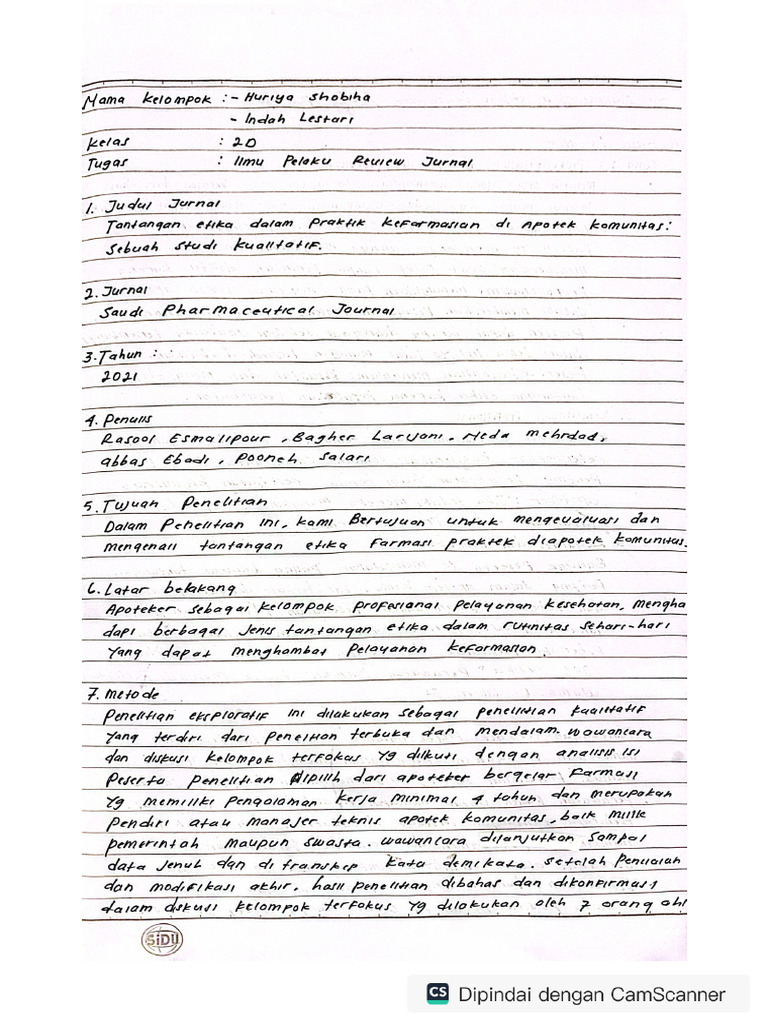 Nama kelompok : - Huriya Shobiha
- Indah Lestari
Kelas : 2D
Tugas : Ilmu Pelaku Review Jurnal
1. Judul Jurnal
Tantangan etika dalam Praktik keFarmasian di Apotek komunitas:
Sebuah Studi kualitatif.
2. Jurnal
Saudi Pharmaceutical Journal
3. Tahun :
2021
4. Penulis
Rasool Esmalipour, Bagher Larijani, Neda mehrdad,
abbas Ebadi, Pooneh Salari
5. Tujuan Penelitian
Dalam Penelitian ini, kami Bertujuan untuk mengevaluasi dan
mengenali tantangan etika Farmasi praktek diapotek komunitas.
6. Latar belakang
Apoteker sebagai kelompok profesianal pelayanan kesehatan, mengha
dapi berbagai jenis tantangan etika dalam rutinitas sehari-hari
yang dapat menghambat pelayanan keFormasian.
7. Metode
Penelitian eksploratif ini dilakukan sebagai penelitian kualitatif
yang terdiri dari penelition terbuka dan mendalam. wawancara
dan diskusi kelompok terfokus yg diikuti dengan analisis isi
Peserta penelitian dipilih dari apoteker bergelar Farmasi
Yg memiliki pengalaman kerja minimal 4 tahun dan merupakan
Pendiri atau manajer teknis apotek komunitas, baik milik
pemerintah maupun swasta. wawancara dilanjutkan sampai
data jenuh dan di transkrip kata demi kata. setelah penilaian
dan modifikasi akhir, hasil penelitian dibahas dan dikonfirmasi
dalam diskusi kelompok terfokus yg dilakukan oleh 7 orang ahli
SiDU
CS Dipindai dengan CamScanner